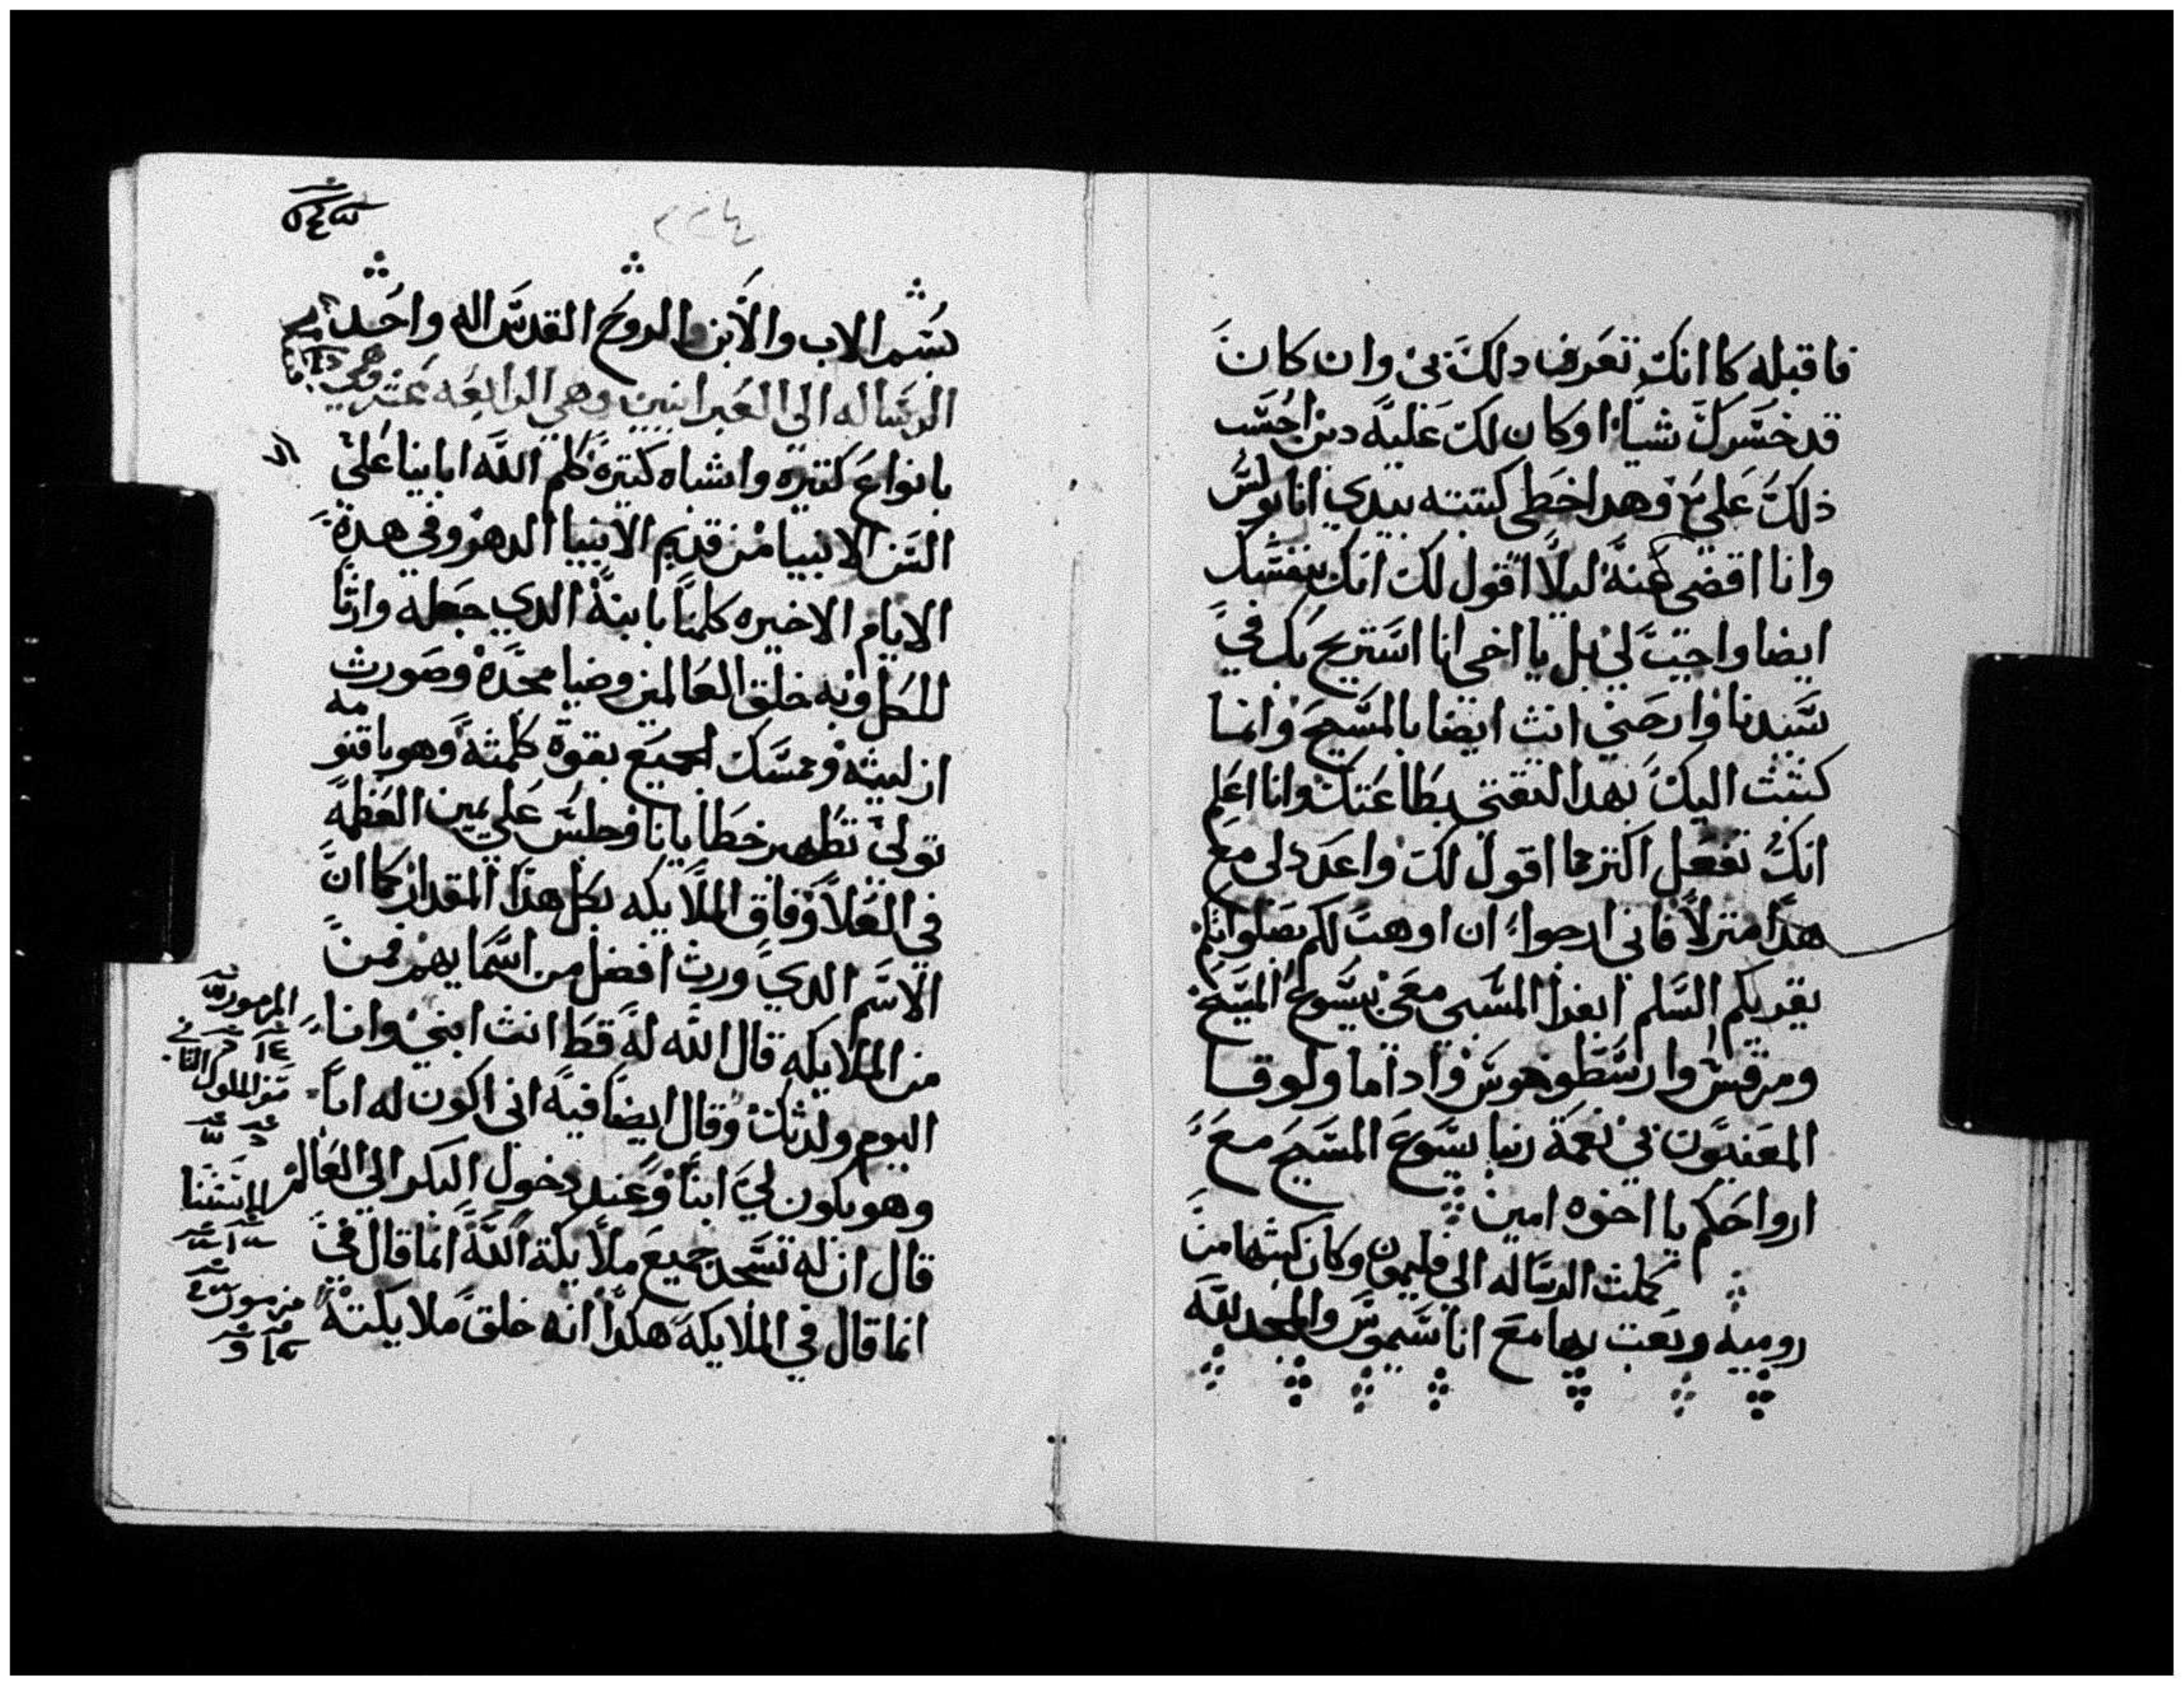 فاقبله كما انك تعرف دلك بي وان كان
قد خسرك شياً او كان لك عليه دين احسب
ذلك علي وهدا خطي كتبته بيدي انا بولس
وانا اقضي عنه ليلا اقول لك انك بنفسك
ايضا واجب لي بل يا اخي انا استريح بك في
سيدنا وارحني انت ايضا بالمسيح وانما
كتبت اليك بهدا لثقتي بطاعتك وانا اعلم
انك تفعل اكترمما اقول لك واعد لي مع
هدا منزلاً فاني ارجوا ان اوهب لكم بصلواتكم
يقريكم السلم ابفرا المسبي معي بيسوع المسيح
ومرقس وارسطرخوس وداما ولوقا
المعينون لي نعمة ربنا يسوع المسيح مع
ارواحكم يا اخوه امين
كملت الرساله الى فليمون وكان كتبها من
روميه وبعت بها مع اناسيموس والمجد لله
٢٢٤
بسم الاب والابن والروح القدس اله واحد
الرساله الي العبرانيين وهي الرابعه عشر
بانواع كتيره واشباه كتيره كلم الله ابابينا علي
السن الانبيا من قديم الدهر وفي هدة
الايام الاخيره كلمنا بابنة الدي جعله وارثا
للكل وبه خلق العالمين وضيا مجدة وصورت
ازليته وممسك الجميع بقوة كلمته وهو باقنومه
تولي تطهير خطايانا وجلس علي يمين العظمه
في العلا وفاق الملايكه بكل هذا المقدار كما ان
الاسم الدي ورث افضل من اسمايهم فمن
من الملايكه قال الله له قط انت ابني وانا
اليوم ولدتك وقال ايضا فيه اني اكون له اباً
وهو يكون لي ابناً وعند دخول البكر الي العالم
قال ان له تسجد جميع ملايكة الله انما قال في
انما قال في الملايكه هكدا انه خلق ملايكته
المزمور
سفر الملوك الثاني
الاستثنا
مزمور